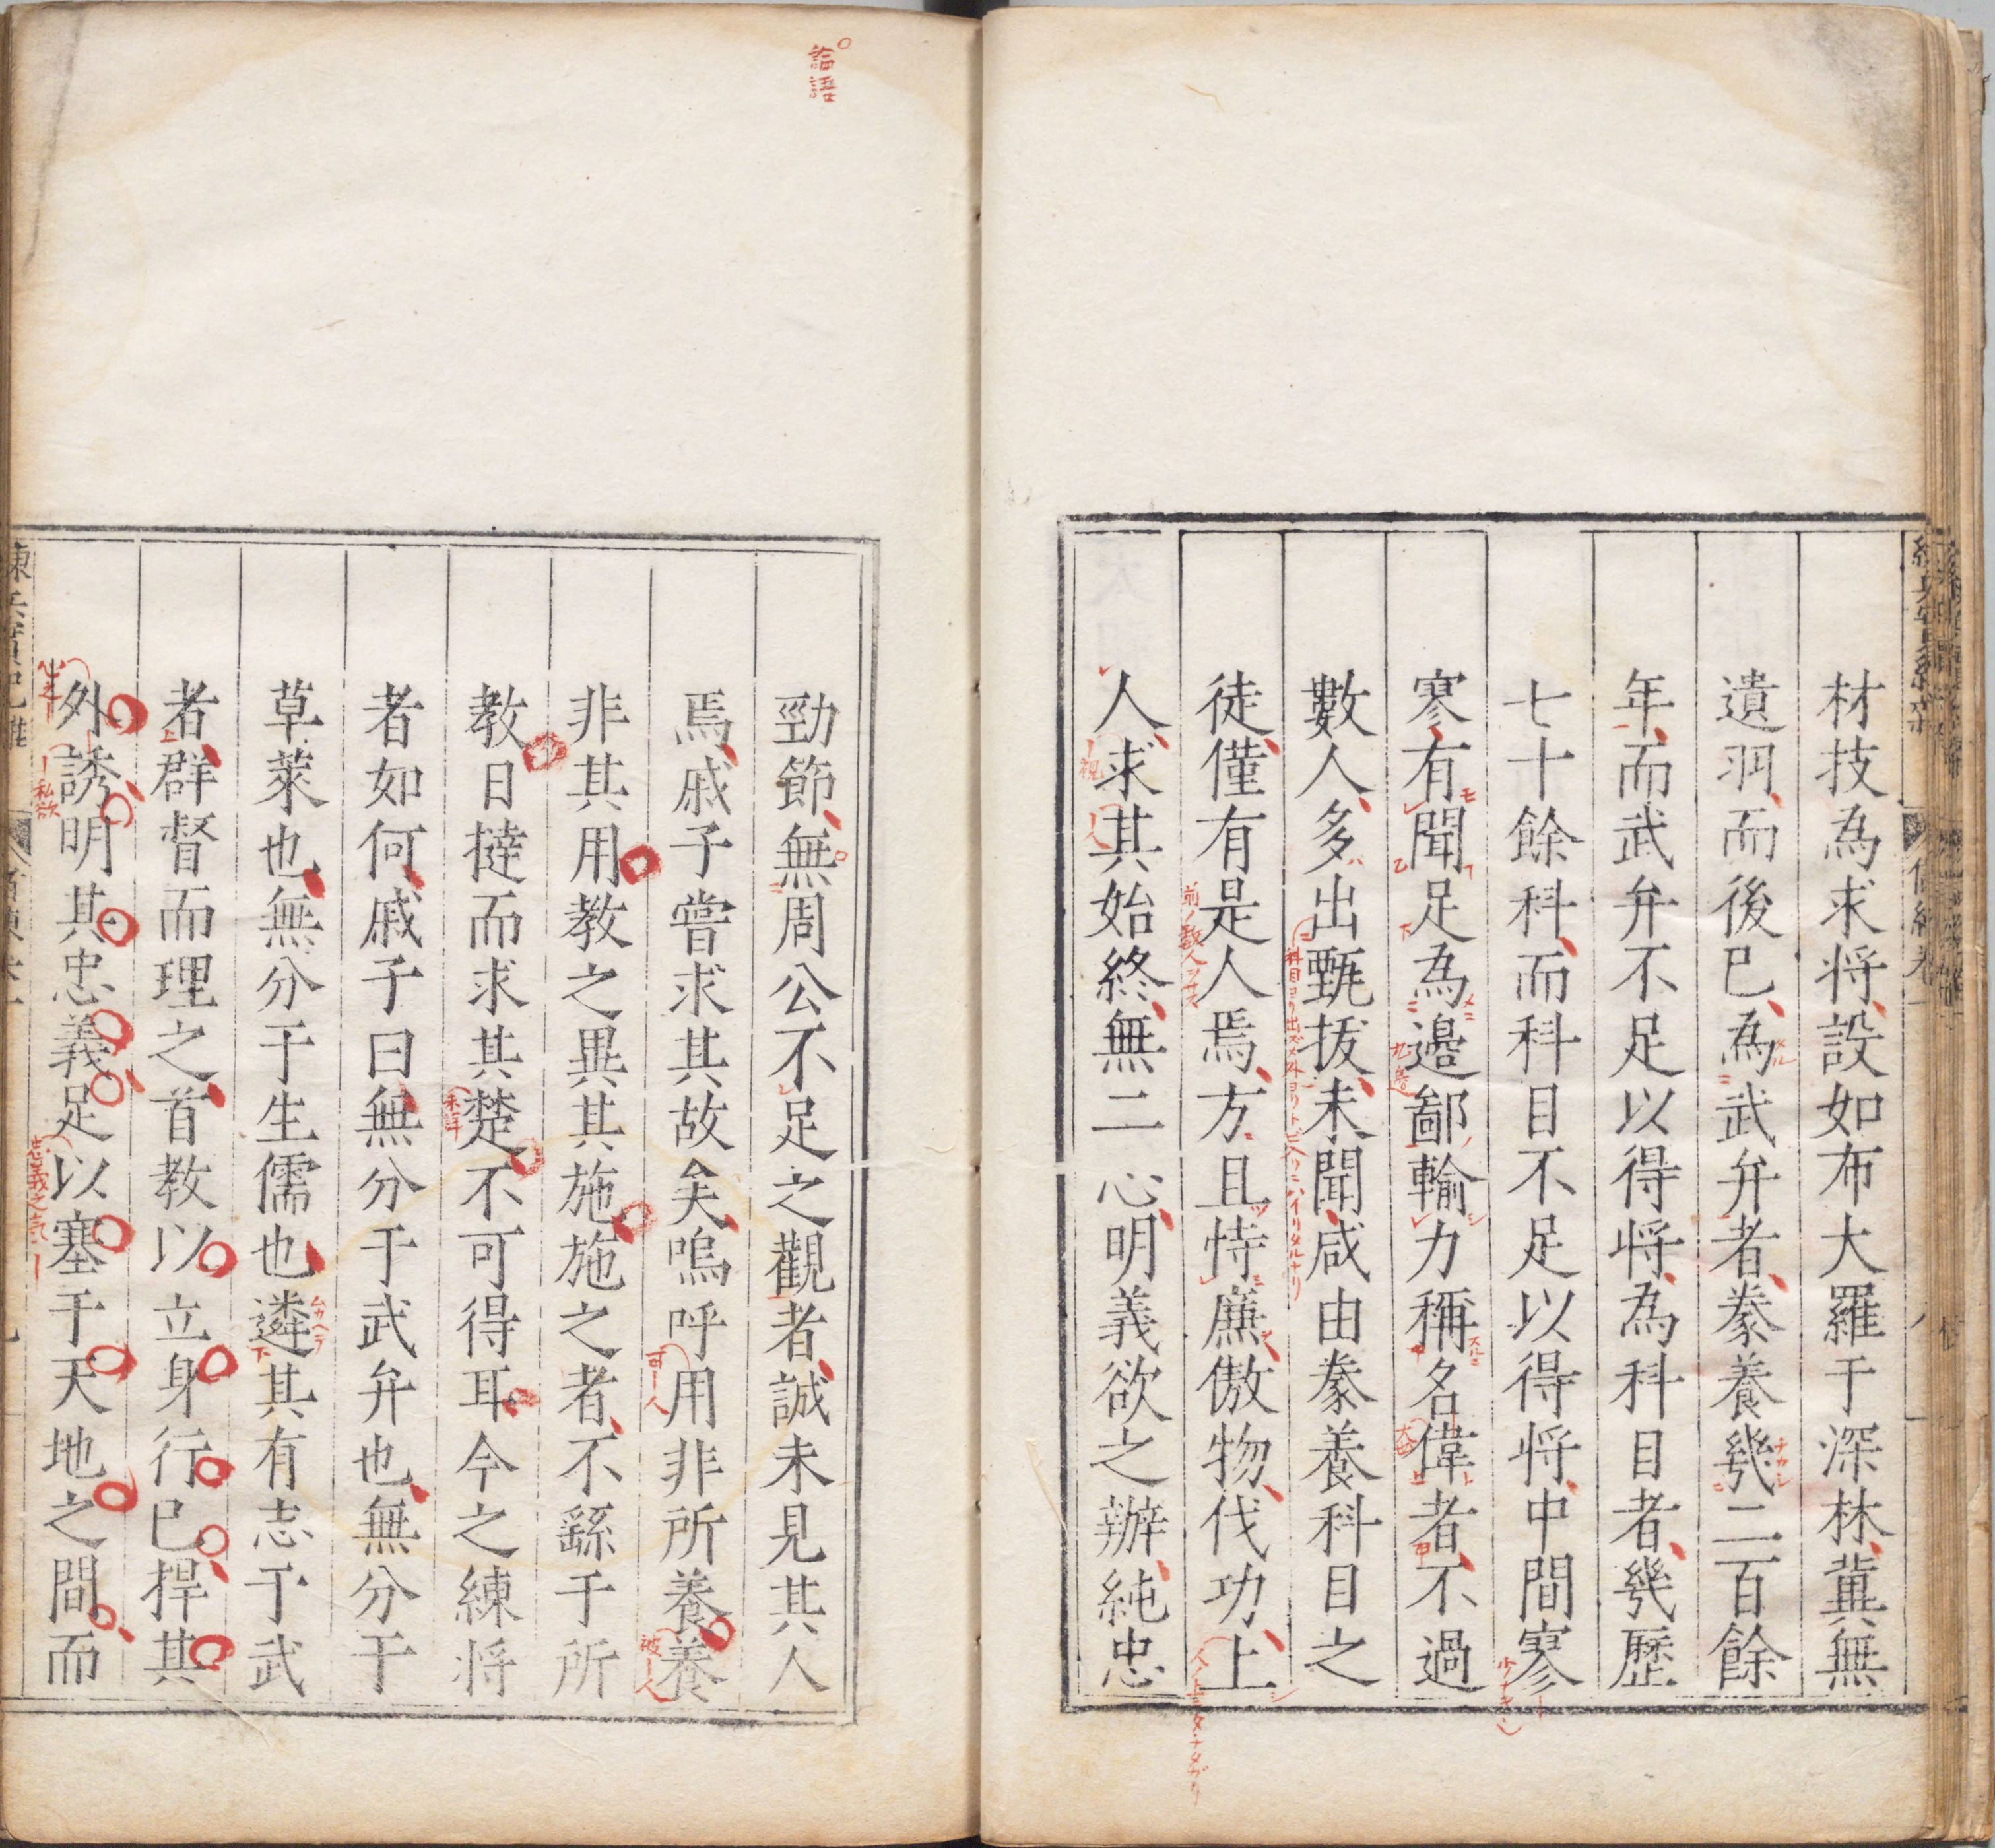 材技為求将設如布大羅于深林冀無
遺羽而後已為武弁者豢養㡬二百餘
年而武弁不足以得将為科目者㡬歷
七十餘科而科目不足以得将中間寥
寥有聞足為邉鄙輸力稱名偉者不過
數人多出甄拔未聞咸由豢養科目之
徒僅有是人焉方且恃廉傲物伐功上
人求其始終無二心明義欲之辦純忠
論語
勁節無周公不足之觀者誠未見其人
焉戚子嘗求其故矣嗚呼用非所養養
非其用教之異其施施之者不繇于所
教日撻而求其楚不可得耳今之練将
者如何戚子曰無分于武弁也無分于
草萊也無分于生儒也遴其有志于武
者群督而理之首教以立身行己捍其
外誘明其忠義足以塞于天地之間而